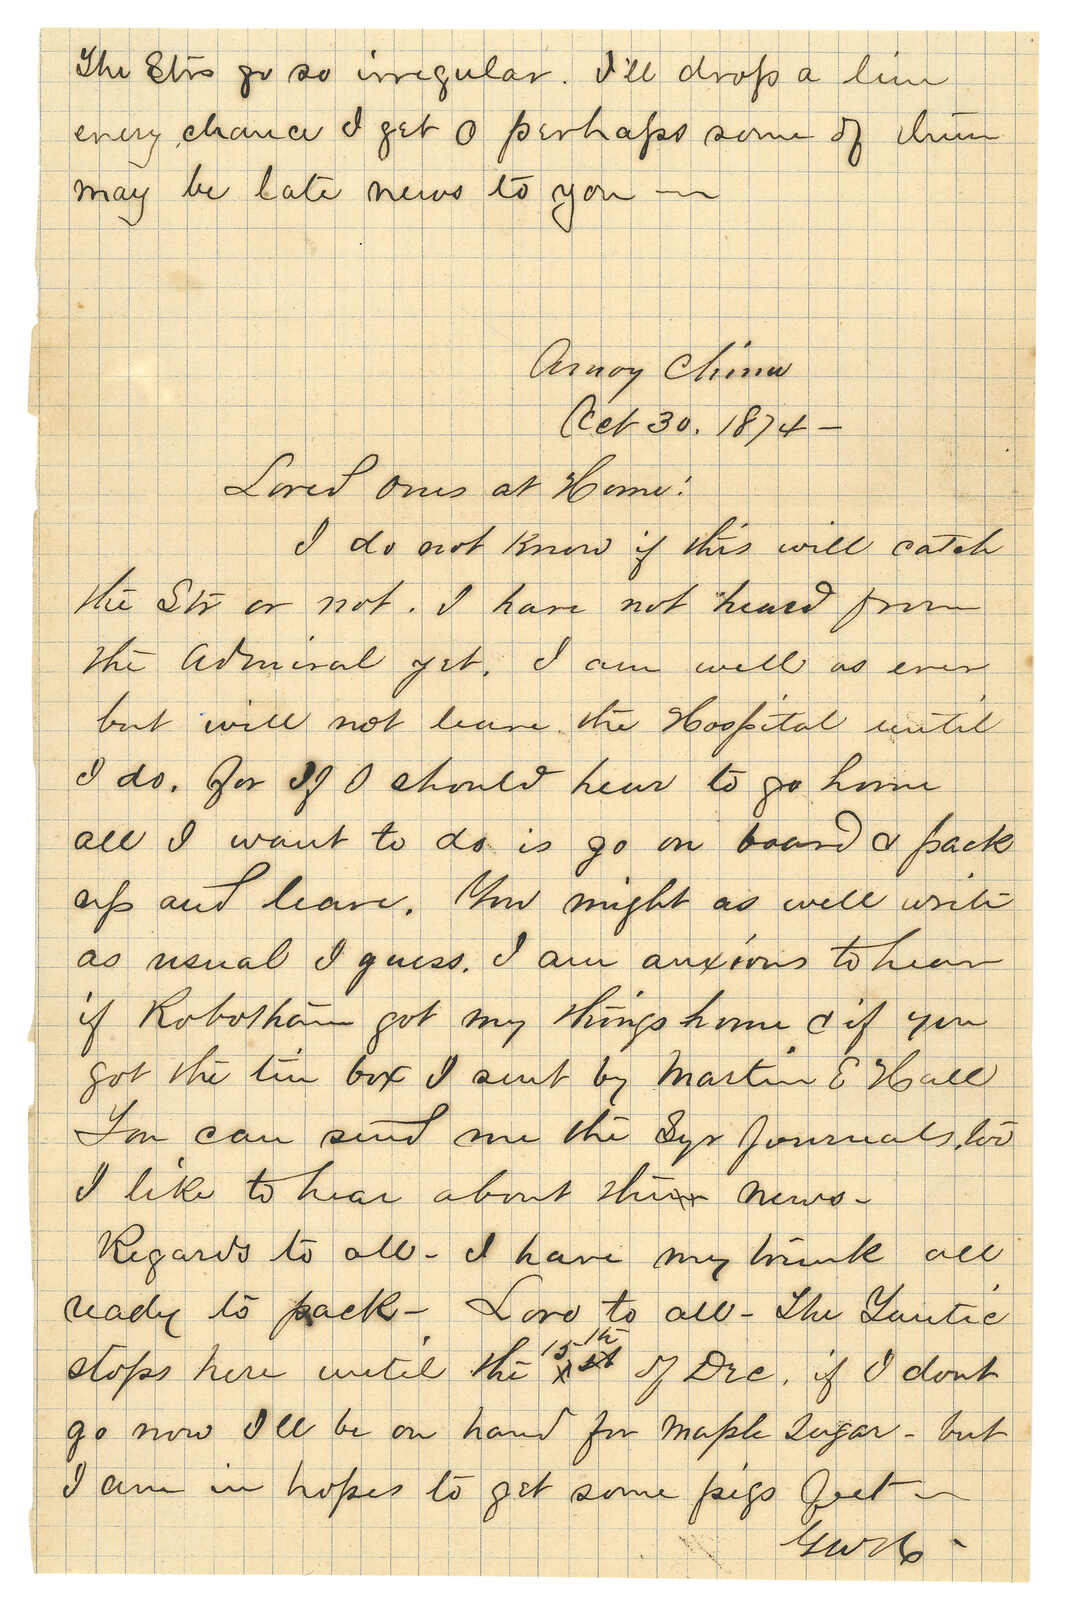 The Strs go so irregular. I'll drop a line
every chance I get & perhaps some of them
may be late news to you —
Amoy China
Oct 30. 1874 —
Loved Ones at Home!
I do not know if this will catch
the Str or not. I have not heard from
the Admiral yet. I am well as ever
but will not leave the Hospital until
I do. for If I should hear to go home
all I want to do is go on board & pack
up and leave. You might as well write
as usual I guess. I am anxious to hear
if Robotham got my things home & if you
got the tin box I sent by Martin E Hall
You can send me the Syr Journals, too
I like to hear about the news -
Regards to all - I have my trunk all
ready to pack - Love to all - The Yantic
stops here until the 15th of Dec. if I dont
go now I'll be on hand for maple sugar - but
I am in hopes to get some pigs feet —
GWH -